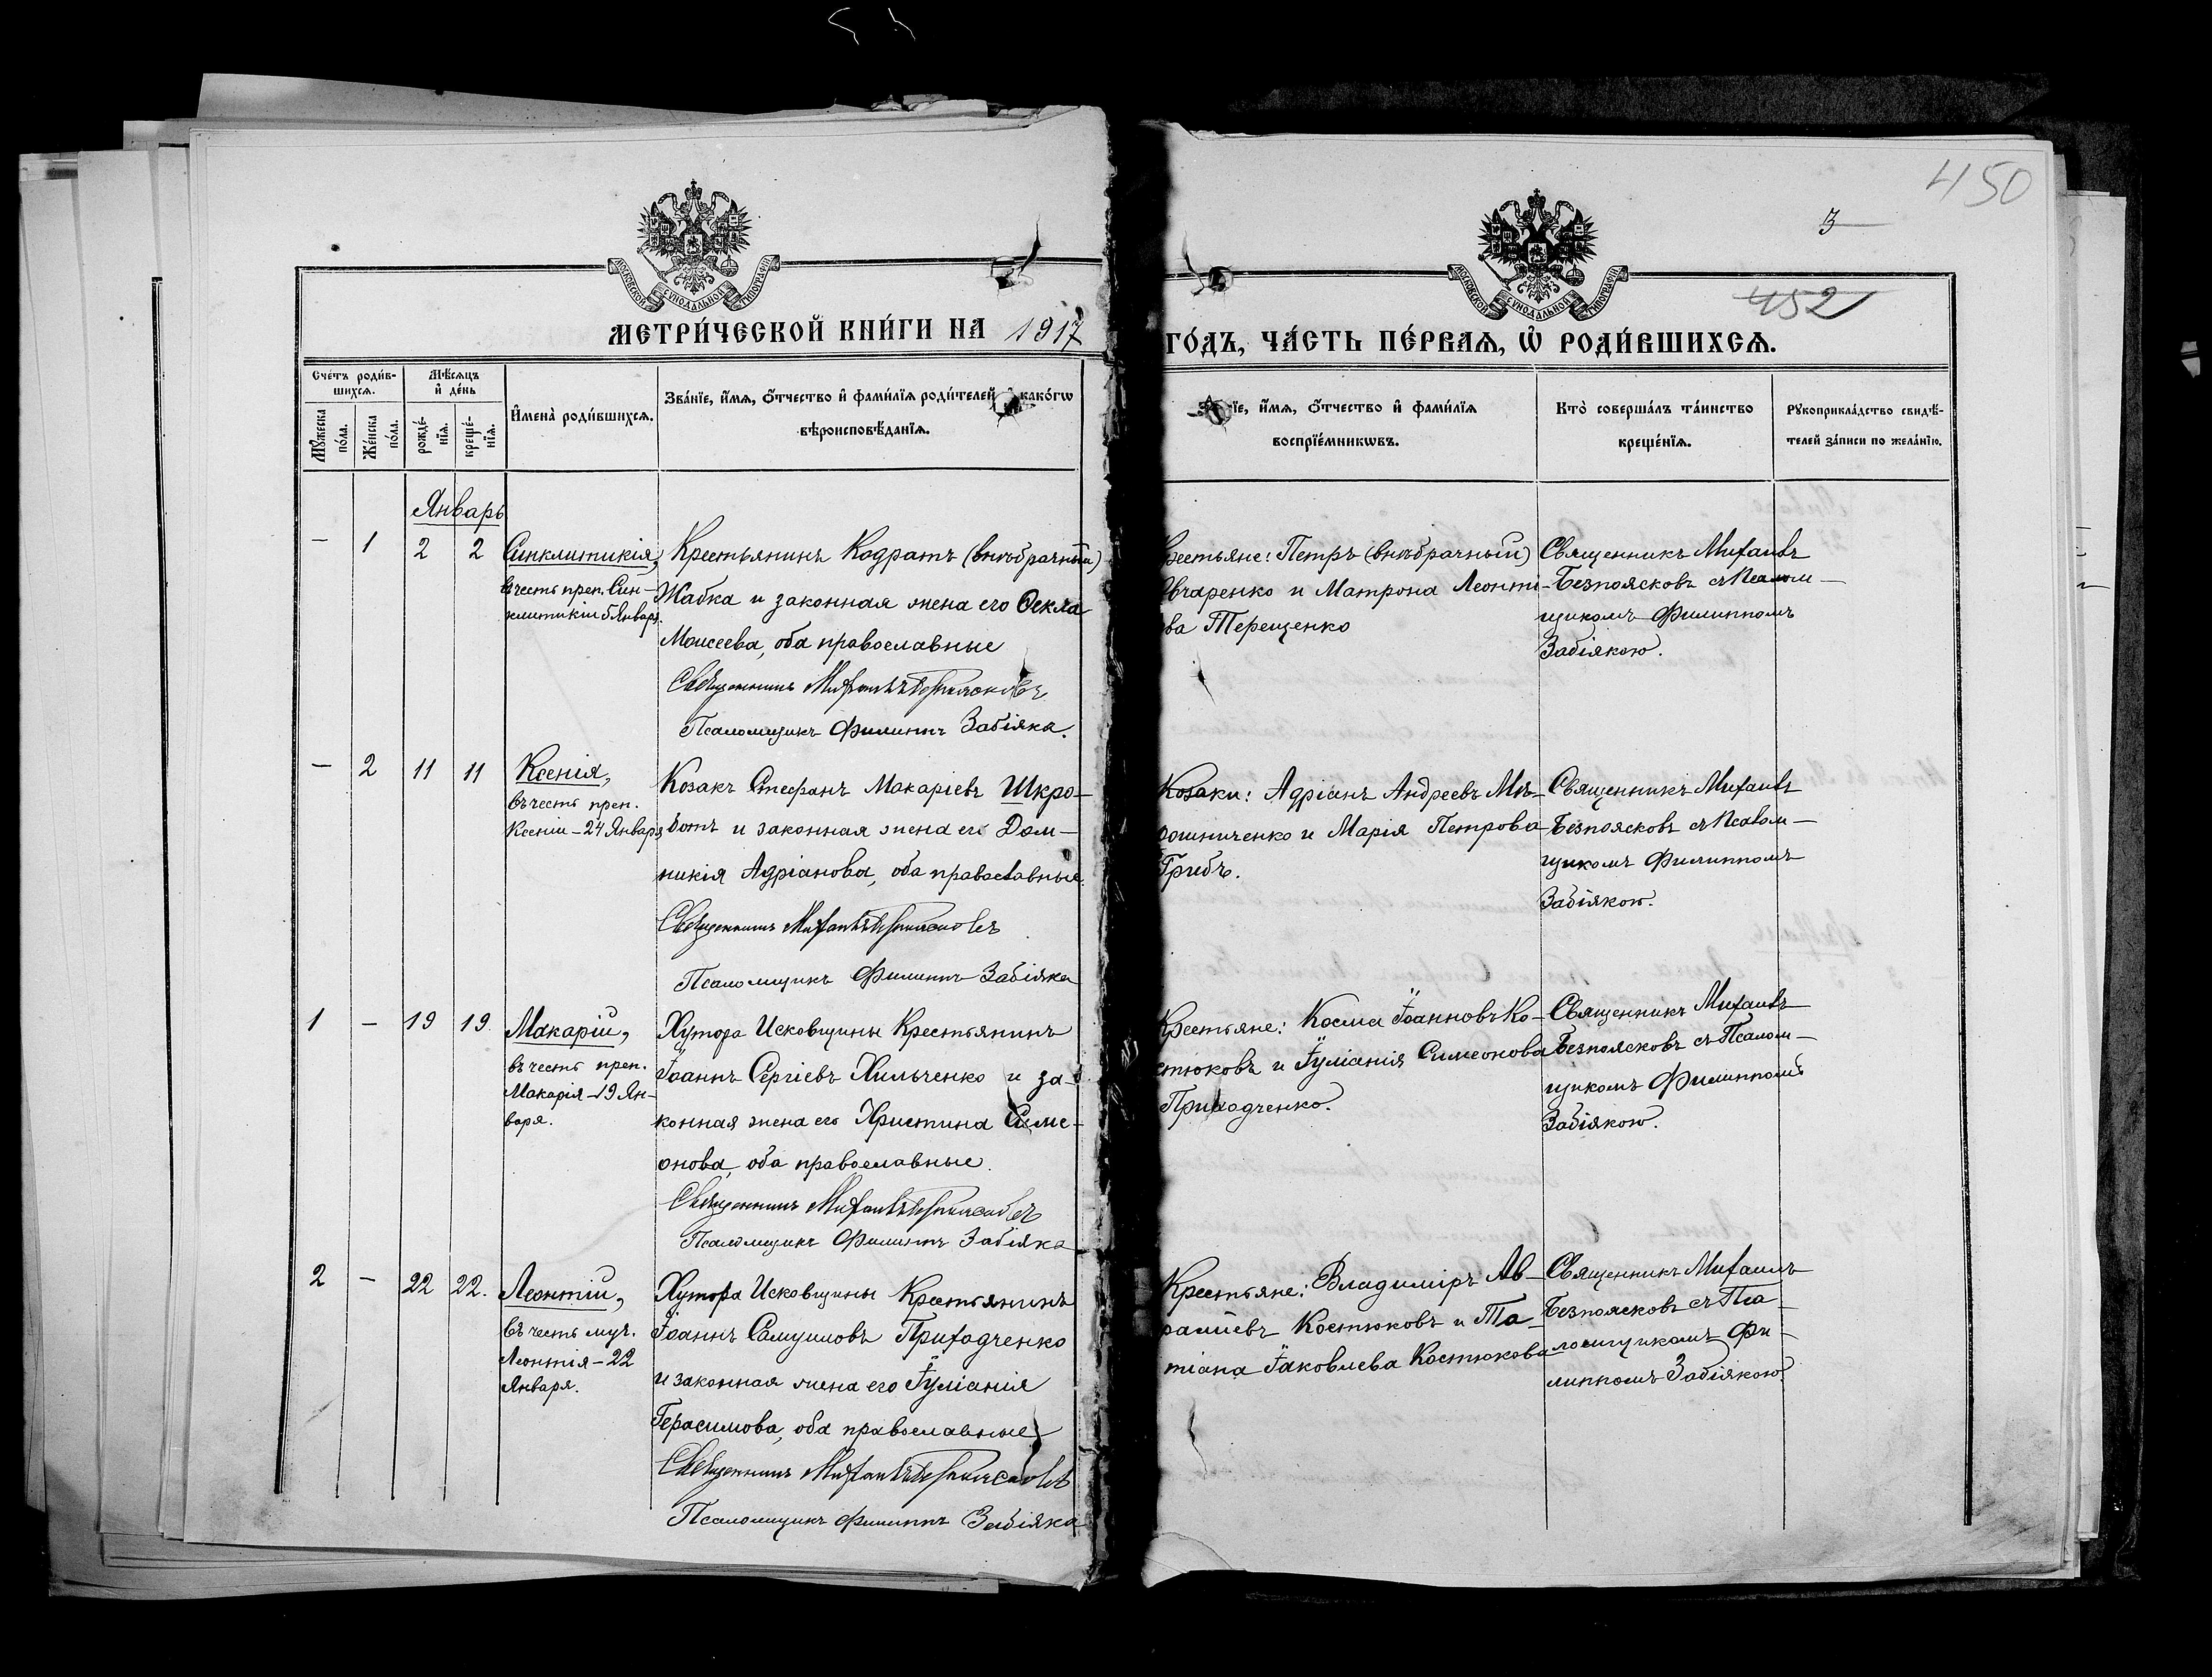 450
3
452
МОСКОВСКОЙ СУНОДАЛЬНОЙ ТИПОГРАФІИ
МОСКОВСКОЙ СУНОДАЛЬНОЙ ТИПОГРАФІИ
МЕТРИ́ЧЕСКОЙ КНИ́ГИ НА 1917
ГО́ДЪ, ЧА́СТЬ ПЕ́РВАЯ, Ѡ҆ РОДИ́ВШИХСЯ.
Сче́тъ роди́в-
шихся.
Мѣ́сяцъ
и҆ де́нь
Мꙋ́жеска по́ла.
Же́нска по́ла.
рожде́-
нїя.
креще́-
нїя.
И҆мена̀ роди́вшихся.
Зва́нїе, и҆́мя, ѻ҆́тчество и҆ фами́лїя роди́телей, како́гѡ
вѣроисповѣ́данїя.
и҆́мя, ѻ҆́тчество и҆ фами́лїя
воспрїе́мникѡвъ.
Кто̀ соверша́лъ та́инство
креще́нїя.
Рꙋкоприкла́дство свидѣ́-
телей за́писи по жела́нїю.
Январь
— 1 2 2
Синклитикія,
въ честь преп. Син-
клитикіи 5 Января.
Крестьянинъ Кодратъ (внѣбрачный)
Жабка и законная жена его Ѳекла
Моисеева, оба православные
Священникъ Михаилъ Безпоясковъ
Псаломщикъ Филиппъ Забіяка.
Крестьяне: Петръ (внѣбрачный)
Овчаренко и Матрона Леонти-
ва Терещенко
Священникъ Михаилъ
Безпоясковъ съ Псалом-
щикомъ Филиппомъ
Забіякою.
— 2 11 11
Ксенія,
въ честь преп.
Ксеніи – 24 Января
Козакъ Стефанъ Макаріевъ Шкро-
ботъ и законная жена его Дом-
никія Адріанова, оба православные.
Священникъ Михаилъ Безпоясковъ
Псаломщикъ Филиппъ Забіяка
Козаки: Адріанъ Андреевъ Мѣ-
рошниченко и Марія Петрова
Грибъ.
Священникъ Михаилъ
Безпоясковъ съ Псалом-
щикомъ Филиппомъ
Забіякою.
1 — 19 19
Макарій,
въ честь преп.
Макарія – 19 Ян-
варя.
Хутора Исковщины Крестьянинъ
Іоаннъ Сергіевъ Хильченко и за-
конная жена его Христина Симе-
онова, оба православные.
Священникъ Михаилъ Безпоясковъ
Псаломщикъ Филиппъ Забіяка
Крестьяне: Косма Іоанновъ Ко-
стюковъ и Іуліанія Симеонова
Приходченко.
Священникъ Михаилъ
Безпоясковъ съ Псалом-
щикомъ Филиппомъ
Забіякою.
2 — 22 22.
Леонтій,
въ честь муч.
Леонтія – 22
Января.
Хутора Исковщины Крестьянинъ
Іоаннъ Самуиловъ Приходченко
и законная жена его Іуліанія
Герасимова, оба православные
Священникъ Михаилъ Безпоясковъ
Псаломщикъ Филиппъ Забіяка
Крестьяне: Владиміръ Ав-
раміевъ Костюковъ и Та-
тіана Іаковлева Костюкова
Священникъ Михаилъ
Безпоясковъ съ Пса-
ломщикомъ Фи-
липпомъ Забіякою.